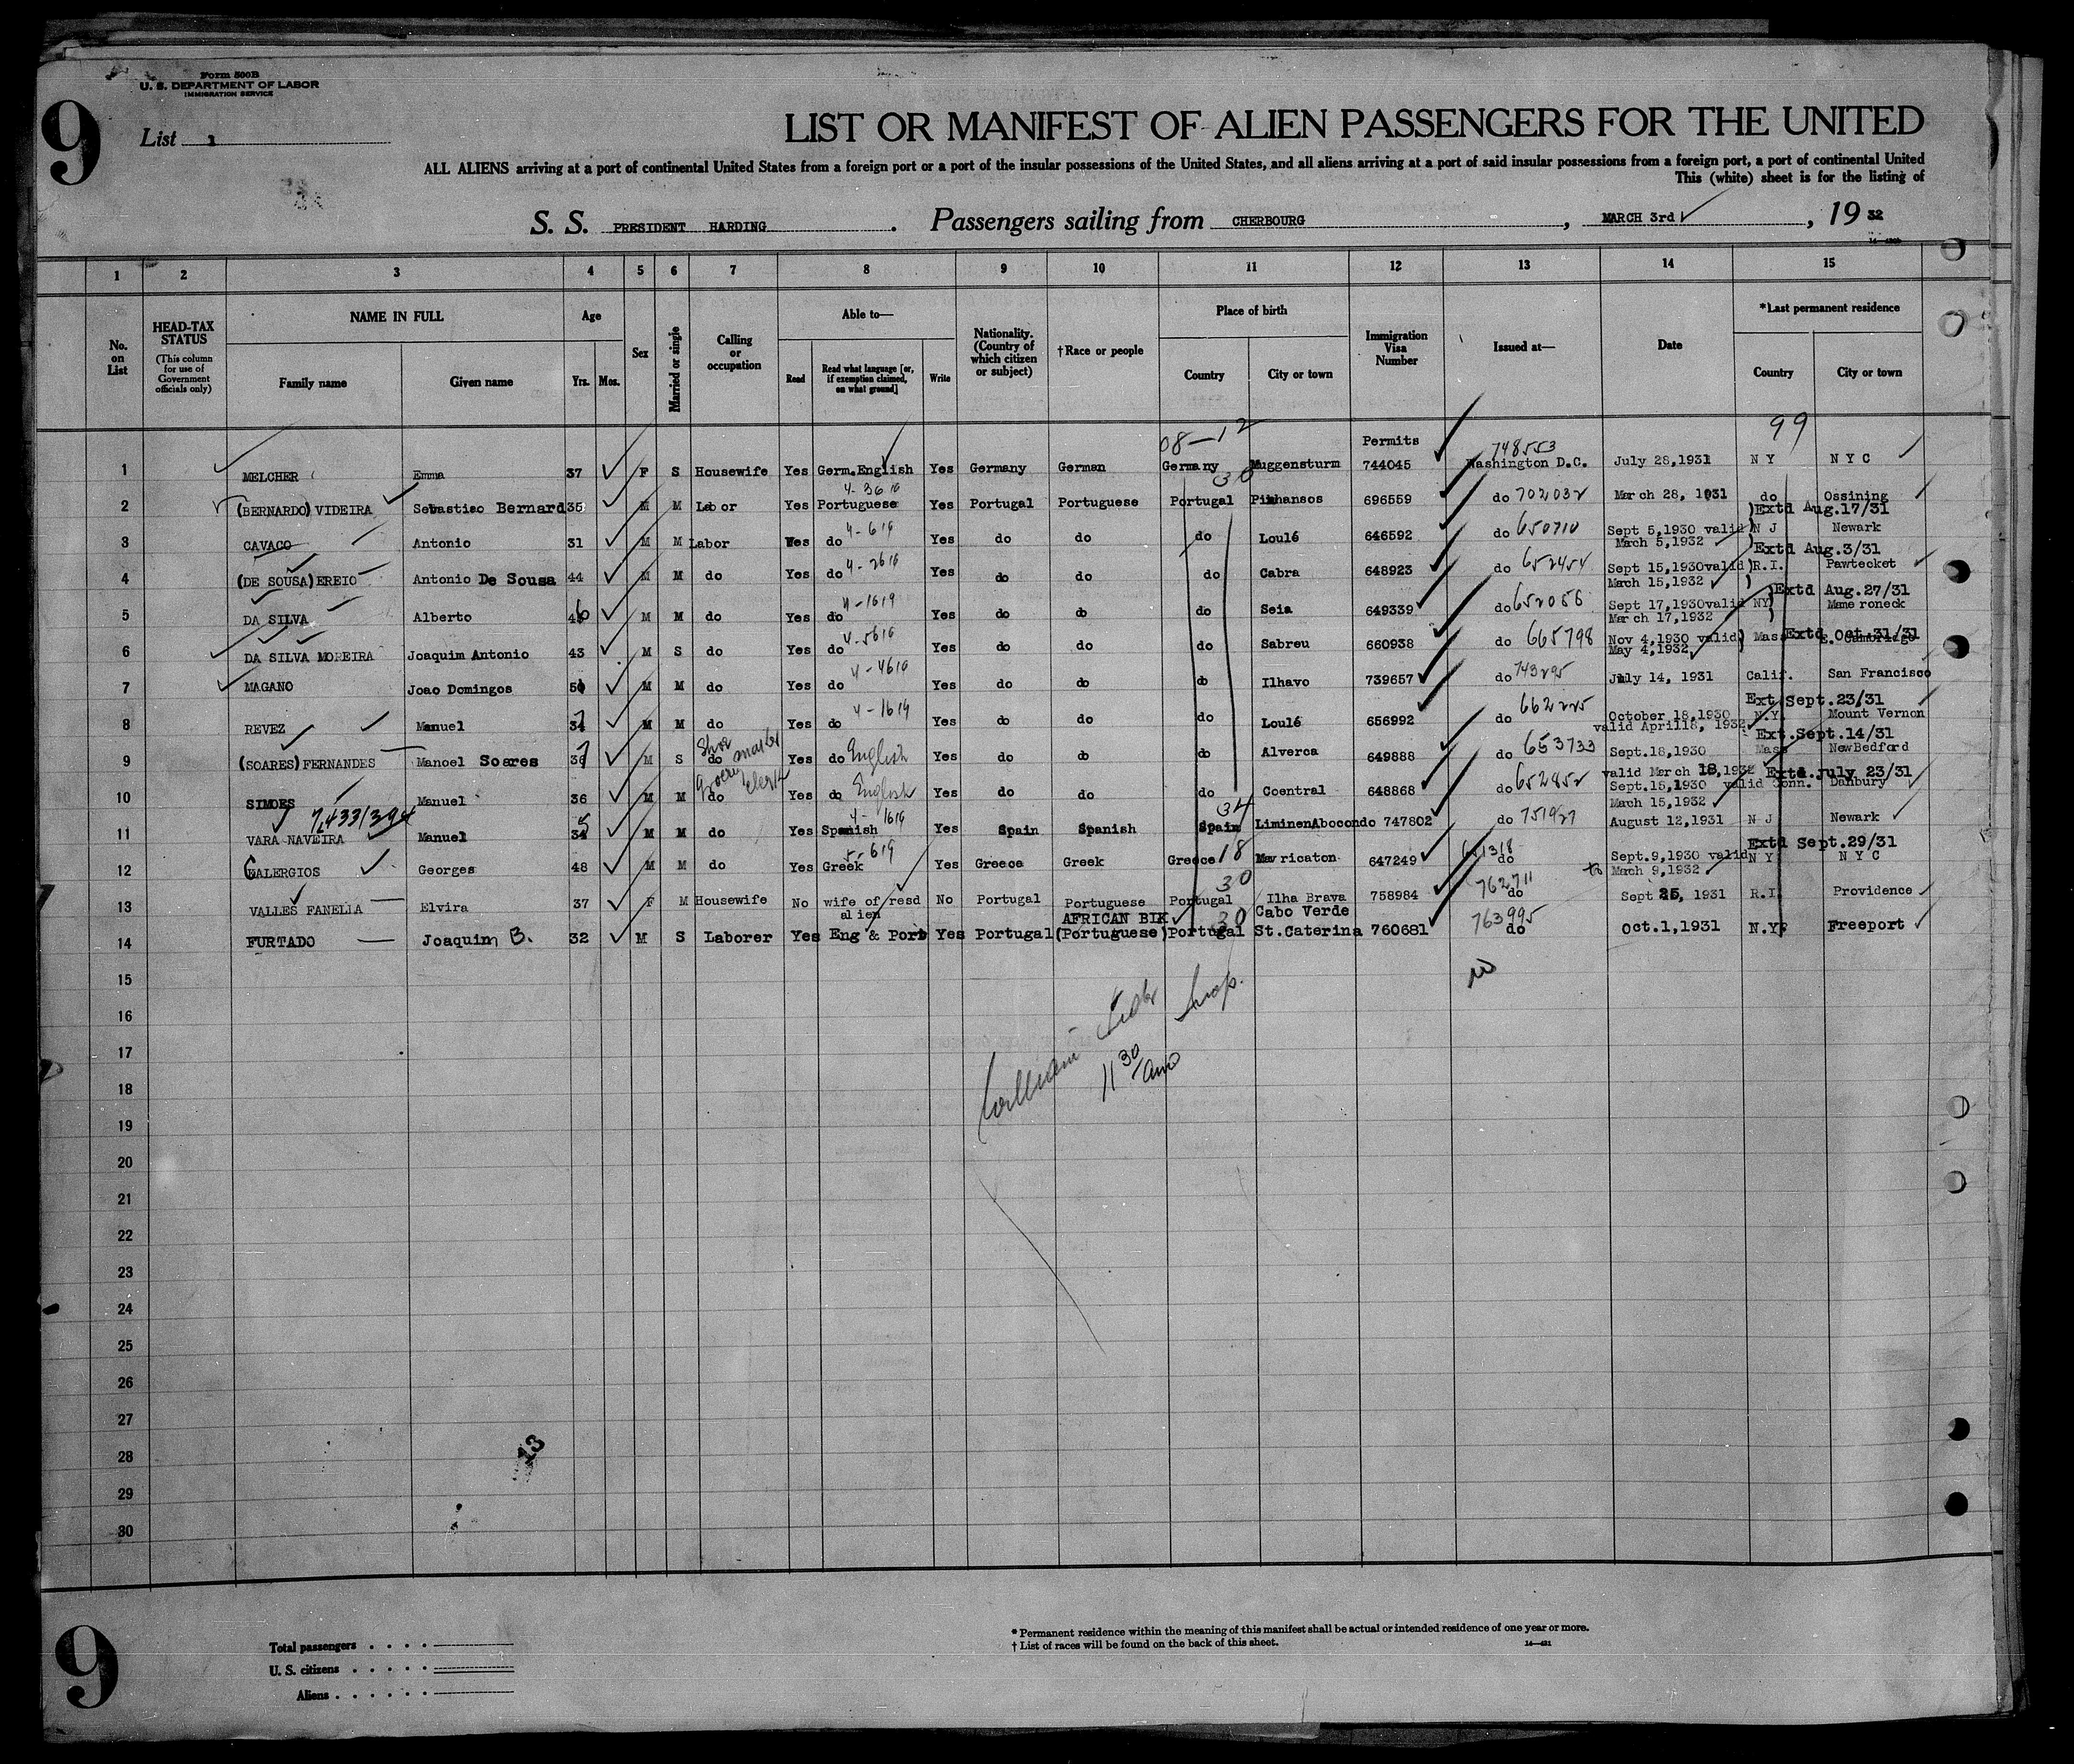 Form 500B
U. S. DEPARTMENT OF LABOR
IMMIGRATION SERVICE
9
List 1
LIST OR MANIFEST OF ALIEN PASSENGERS FOR THE UNITED
ALL ALIENS arriving at a port of continental United States from a foreign port or a port of the insular possessions of the United States, and all aliens arriving at a port of said insular possessions from a foreign port, a port of continental United
This (white) sheet is for the listing of
S. S. PRESIDENT HARDING. Passengers sailing from CHERBOURG, MARCH 3rd, 19 32
1 2 3 4 5 6 7 8 9 10 11 12 13 14 15
No. on List
HEAD-TAX STATUS (This column for use of Government officials only)
NAME IN FULL
Family name Given name
Age
Yrs. Mos.
Sex
Married or single
Calling or occupation
Able to—
Read Read what language [or, if exemption claimed, on what ground] Write
Nationality. (Country of which citizen or subject)
†Race or people
Place of birth
Country City or town
Immigration Visa Number
Issued at—
Date
*Last permanent residence
Country City or town
08-12 Permits 748553 99
1 MELCHER Emma 37 F S Housewife Yes Germ.English Yes Germany German Germany Muggensturm 744045 Washington D.C. July 28,1931 N Y N Y C
30
2 (BERNARDO) VIDEIRA Sebastiao Bernard 35 M M Labor Yes Portuguese Yes Portugal Portuguese Portugal 696559 do 702032 March 28, 1931 do Ossining
)Extd Aug.17/31
3 CAVACO Antonio 31 M M Labor Yes do 4-619 Yes do do do Loulé 646592 do 650710 Sept 5,1930 valid March 5,1932 N J Newark
Extd Aug.3/31
4 (DE SOUSA) EREIO Antonio De Sousa 44 M M do Yes do Yes do do do Cabra 648923 do 652454 Sept 15,1930valid March 15,1932 R.I. Pawtecket
)Extd Aug.27/31
5 DA SILVA Alberto 46 M M do Yes do 4-1619 Yes do do do Seia 649339 do 652056 Sept 17,1930valid March 17,1932 NY Mamaroneck
Extd Oct.31/31
6 DA SILVA MOREIRA Joaquim Antonio 43 M S do Yes do Yes do do do Sabreu 660938 do 665798 Nov 4,1930 valid) May 4,1932 Mass E. Cambridge
7 MAGANO Joao Domingos M M do Yes do Yes do do do Ilhavo 739657 do 743295 July 14, 1931 Calif. San Francisco
Ext.Sept.23/31
8 REVEZ Manuel M M do Yes do 4-1619 Yes do do do Loulé 656992 do 662225 October 18,1930 valid April18, 1932 N.Y. Mount Vernon
Ext.Sept.14/31
9 (SOARES) FERNANDES Manoel Soares M S do Shoe maker Yes do English Yes do do do Alverca 649888 do 653733 Sept.18,1930 valid March 18,1932 Mass New Bedford
Extd.july 23/31
10 SIMOES Manuel 36 M M do Grocery Clerk Yes do English Yes do do do Coentral 648868 do 652852 Sept.15,1930 valid March 15,1932 Conn. Danbury
34
11 VARA NAVEIRA Manuel M M do Yes Spanish 4-1619 Yes Spain Spanish Spain LiminenAbocondo 747802 do 751927 August 12,1931 N J Newark
Extd Sept.29/31
12 GALERGIOS Georges 48 M M do Yes Greek 5-619 Yes Greece Greek Greece 18 Mavricaton 647249 do Sept.9,1930 valid to March 9,1932 N Y N Y C
30
13 VALLES FANELLA Elvira 37 F M Housewife No wife of resd alien No Portugal Portuguese Portugal Ilha Brava 758984 762711 do Sept 25, 1931 R.I. Providence
AFRICAN BlK 30 Cabo Verde
14 FURTADO Joaquim B. 32 M S Laborer Yes Eng & Port Yes Portugal (Portuguese) Portugal St.Caterina 760681 763995 do Oct.1,1931 N.Y. Freeport
15
16
17
William Insp.
11 30/am
18
19
20
21
22
23
24
25
26
27
28
13
29
30
9
Total passengers . . . .
U. S. citizens . . . . .
Aliens . . . . . .
* Permanent residence within the meaning of this manifest shall be actual or intended residence of one year or more.
† List of races will be found on the back of this sheet.